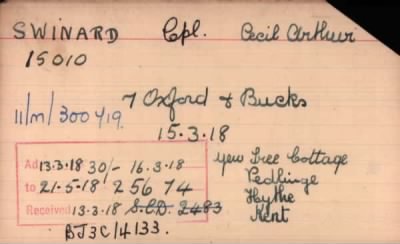 SWINARD Cpl. Cecil Arthur
15010
7 Oxford & Bucks
11/M/300419.
15.3.18
Ad 13.3.18 30/- 16.3.18
to 21-5-18 2 56 74
Received 13.3.18 S.C.D. 2483
BJ3C/4133.
Yew Tree Cottage
Pedlinge
Hythe
Kent